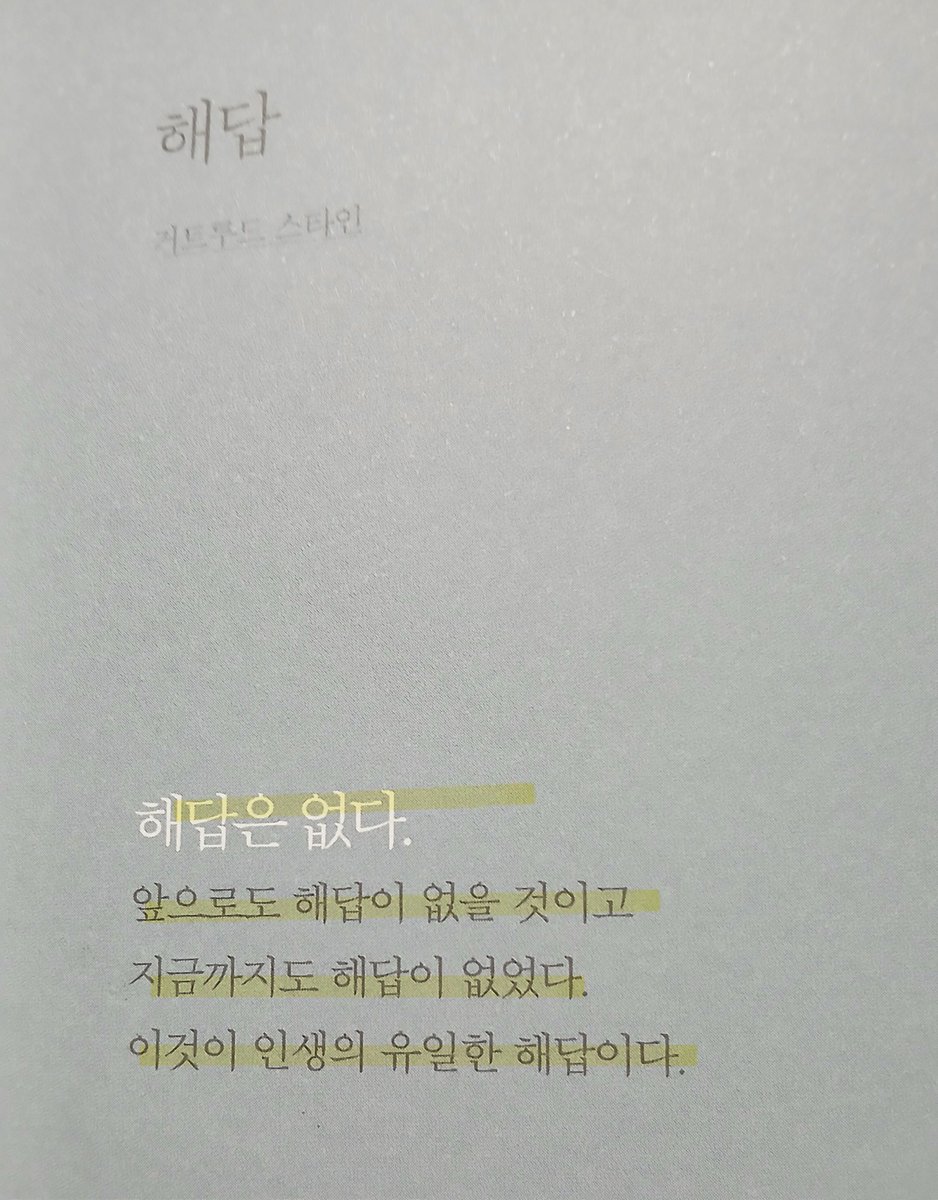 해답
거트루드 스타인
해답은 없다.
앞으로도 해답이 없을 것이고
지금까지도 해답이 없었다.
이것이 인생의 유일한 해답이다.